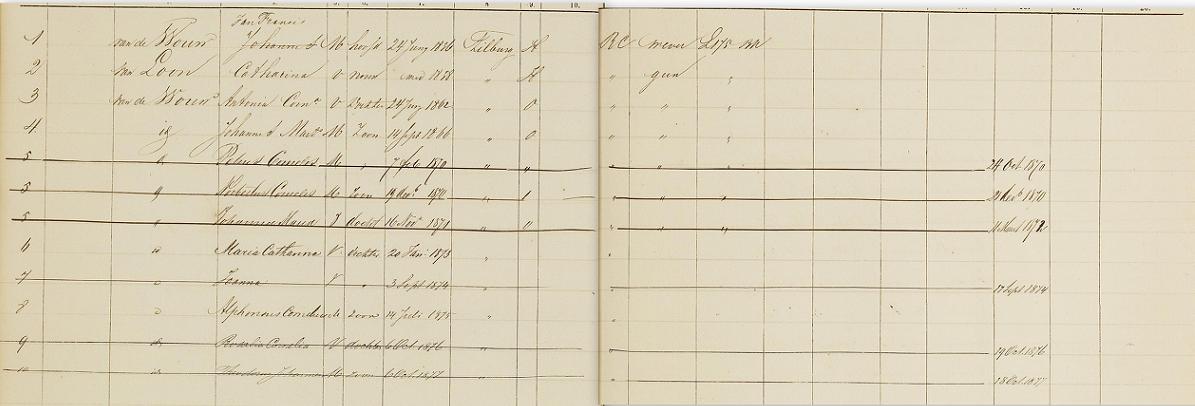 Jan Francis
1 van de Wouw Johannes M hoofd 24 Juny 1836 Tilburg H RC wever
2 van Loon Catharina V vrouw 1838 " H " geen "
3 van de Wouw Antonia Corn V Dochter 24 Juny 1862 " O " " "
4 id Johannes Mart M Zoon 14 Sept 1866 " O " " "
5 " Petrus Cornelis M " 7 feb 1870 " " " " 24 Oct 1870
5 Norbertus Cornelis M Zoon 19 1870 " " " " 1870
5 " Johanna Maria V docht 16 Nov 1871 " " " " " 11 Maart 1872
6 id Maria Catharina V dochter 20 1873 " "
7 " Joanna V " 3 Sept 1874 " " 17 Sept 1874
8 " Alphonsus Cornelius M Zoon 14 Juli 1875 " "
9 id Rosalia Cornelia V dochter 6 Oct 1876 " " 19 Oct 1876
10 id Johannes M zoon 6 Oct 1877 " " 18 Oct 1877